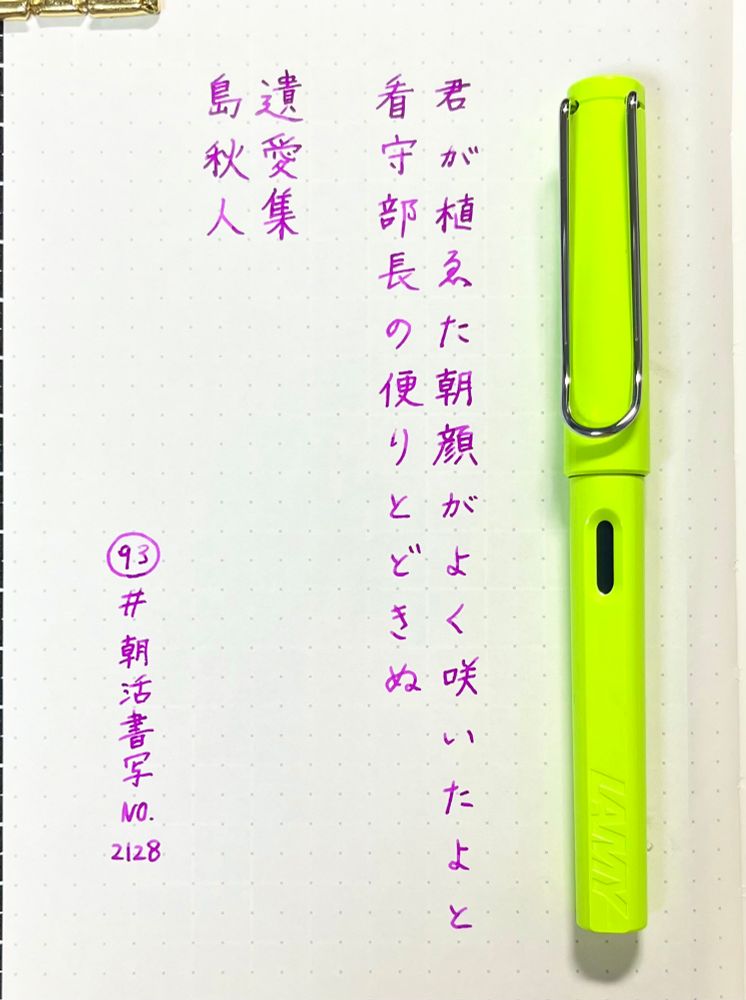 君が植ゑた朝顔がよく咲いたよと
看守部長の便りとどきぬ
遺愛集
島秋人
93
#朝活書写
NO.
2128
LAMY